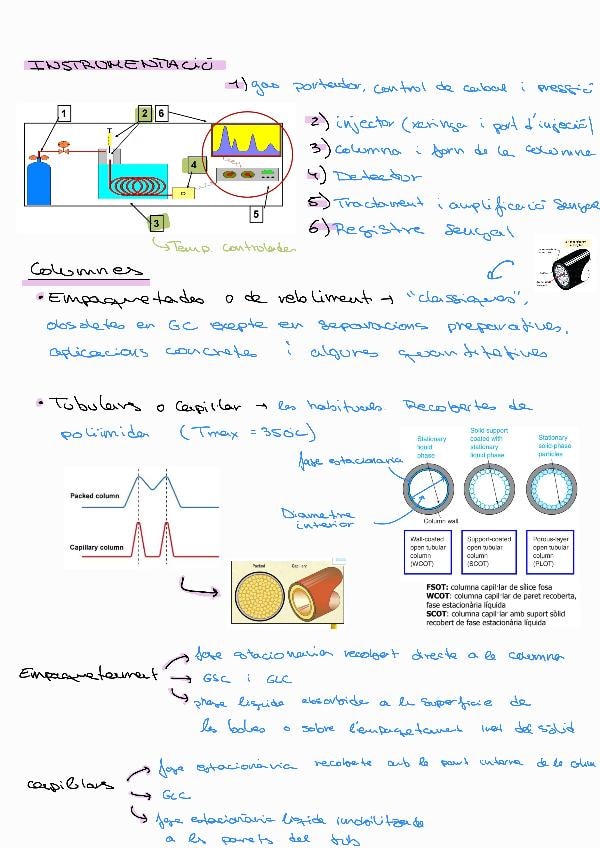 INSTRUMENTACIÓ
1) gas portador, control de cabal i pressió
1
2
6
4
3
5
Temp. controlada
2) injector (xeringa i port d'injecció)
3) columna i forn de la columna
4) Detector
5) Tractament i amplificació senyal
6) Registre senyal
Columnes
• Empaquetades o de rebliment → "clàssiques",
obsoletes en GC excepte en separacions preparatives,
aplicacions concretes i algunes quantitatives
• Tubulars o Capil·lar → les habituals. Recobertes de
poliimida (Tmax = 350ºC)
Packed column
Capillary column
fase estacionaria
Diametre
interior
Stationary
liquid
phase
Solid support
coated with
stationary
liquid phase
Stationary
solid-phase
particles
Column wall
Wall-coated
open tubular
column
(WCOT)
Support-coated
open tubular
column
(SCOT)
Porous-layer
open tubular
column
(PLOT)
FSOT: columna capil·lar de sílice fosa
WCOT: columna capil·lar de paret recoberta,
fase estacionària líquida
SCOT: columna capil·lar amb suport sòlid
recobert de fase estacionària líquida
Packed
Capillary
Empaquetament
fase estacionaria recobert directe a la columna
→ GSC i GLC
phase liquida absorbida a la superficie de
les boles o sobre l'empaquetament inert del sòlid
capil·lars
fase estacionària recoberta amb la paret interna de la
→ GLC
fase estacionària liquida inmobilitzada
a les parets del tub